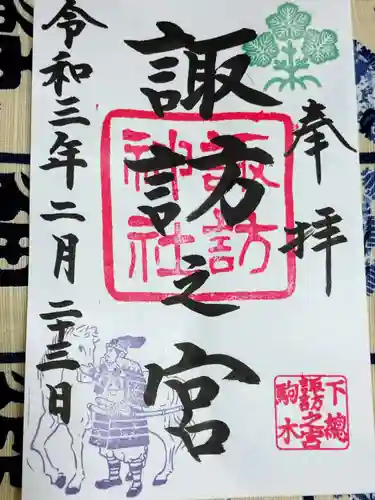 奉拝
諏訪之宮
諏訪
神社
令和三年二月二十三日
下總
諏訪之宮
駒木